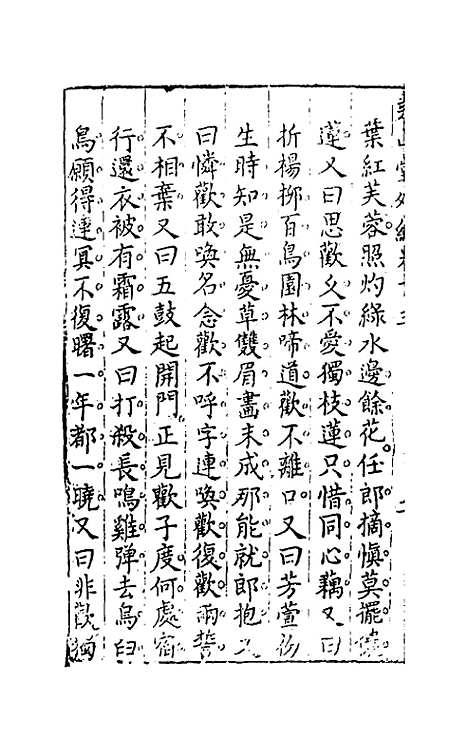 葉紅芙蓉照灼綠水邊餘花任郎摘愼莫罷儂
蓮又曰思歡久不愛獨枝蓮只惜同心藕又曰
折楊柳百鳥園林啼道歡不離口又曰芳萱初
生時知是無憂草雙眉畫未成那能就郎抱又
曰憐歡敢喚名念歡不呼字連喚歡復歡兩誓
不相棄又曰五鼓起開門正見歡子度何處宿
行還衣被有霜露又曰打殺長鳴雞彈去烏臼
鳥願得連冥不復曙一年都一曉又曰非歡獨